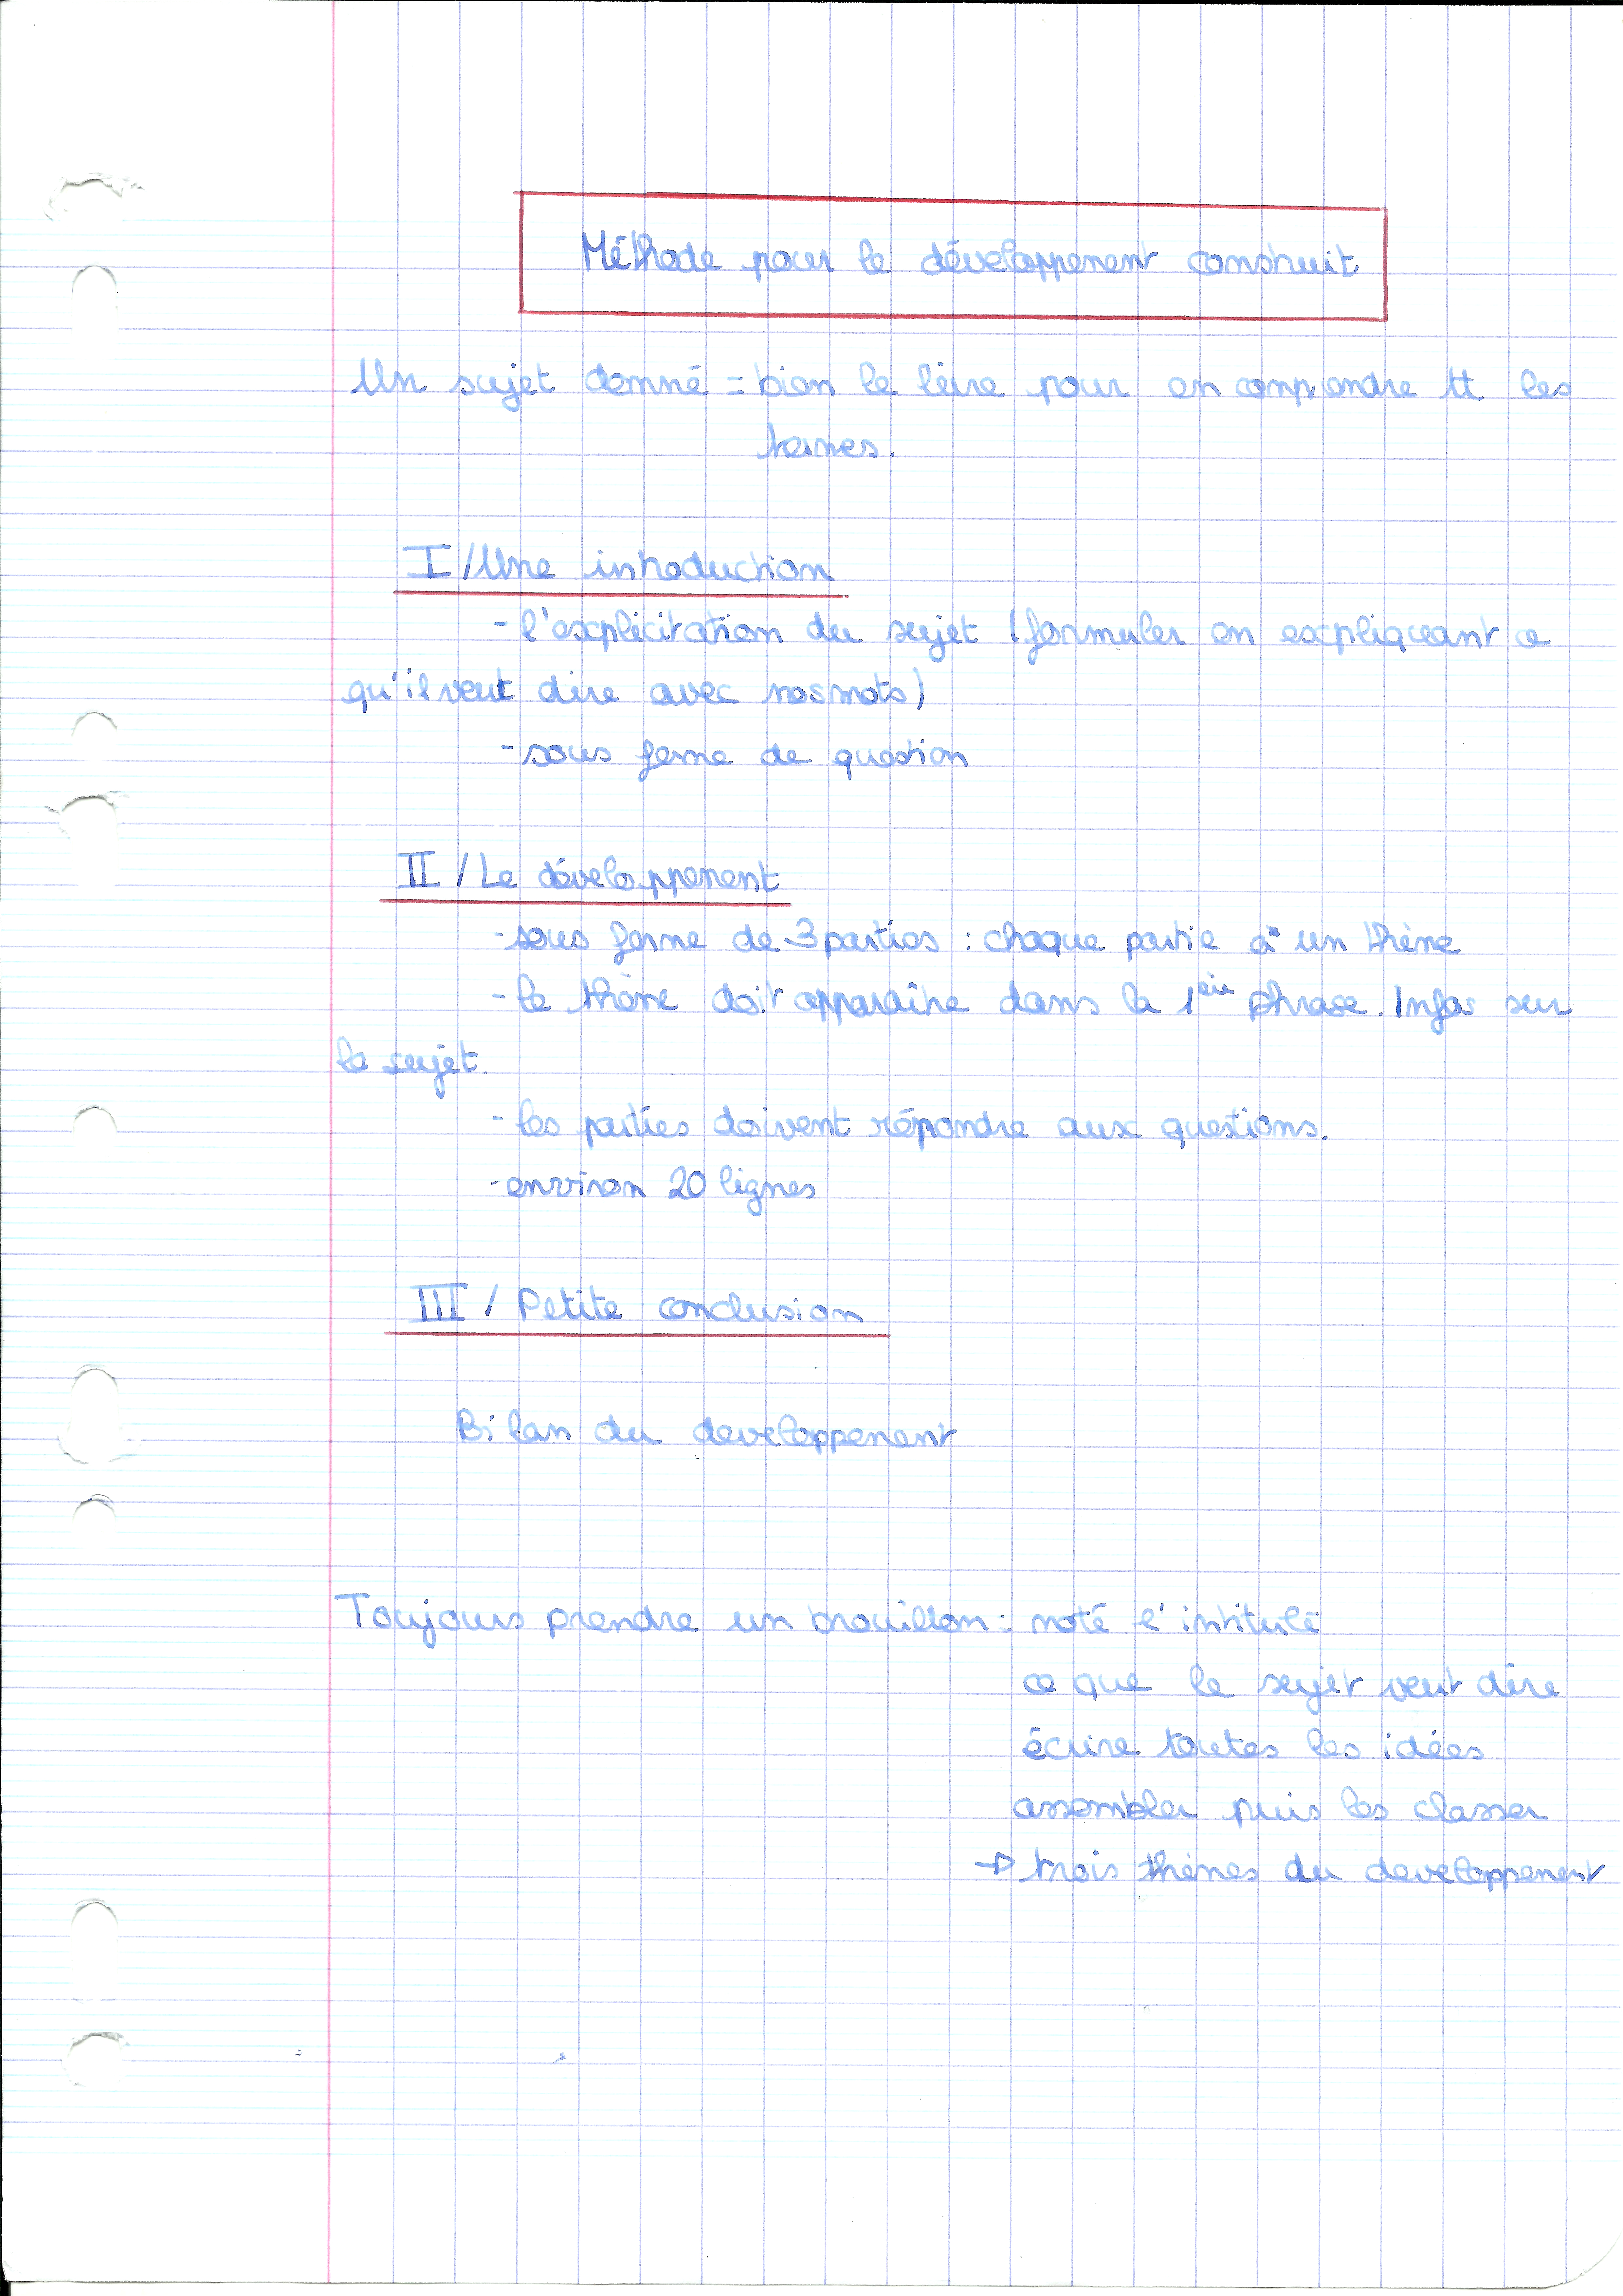 Méthode pour le développement construit
Un sujet donné = bien le lire pour en comprendre tt les
termes.
I / Une introduction
- l'explicitation du sujet (formuler en expliquant ce
qu'il veut dire avec nos mots)
- sous forme de question
II / Le développement
- sous forme de 3 parties : chaque partie à un thème
- le thème doit apparaître dans la 1ère phrase. Infos sur
le sujet.
- les parties doivent répondre aux questions.
- environ 20 lignes
III / Petite conclusion
Bilan du developpement
Toujours prendre un brouillon : noté l'intitulé
ce que le sujet veut dire
écrire toutes les idées
assembler puis les classer
→ trois thèmes du developpement